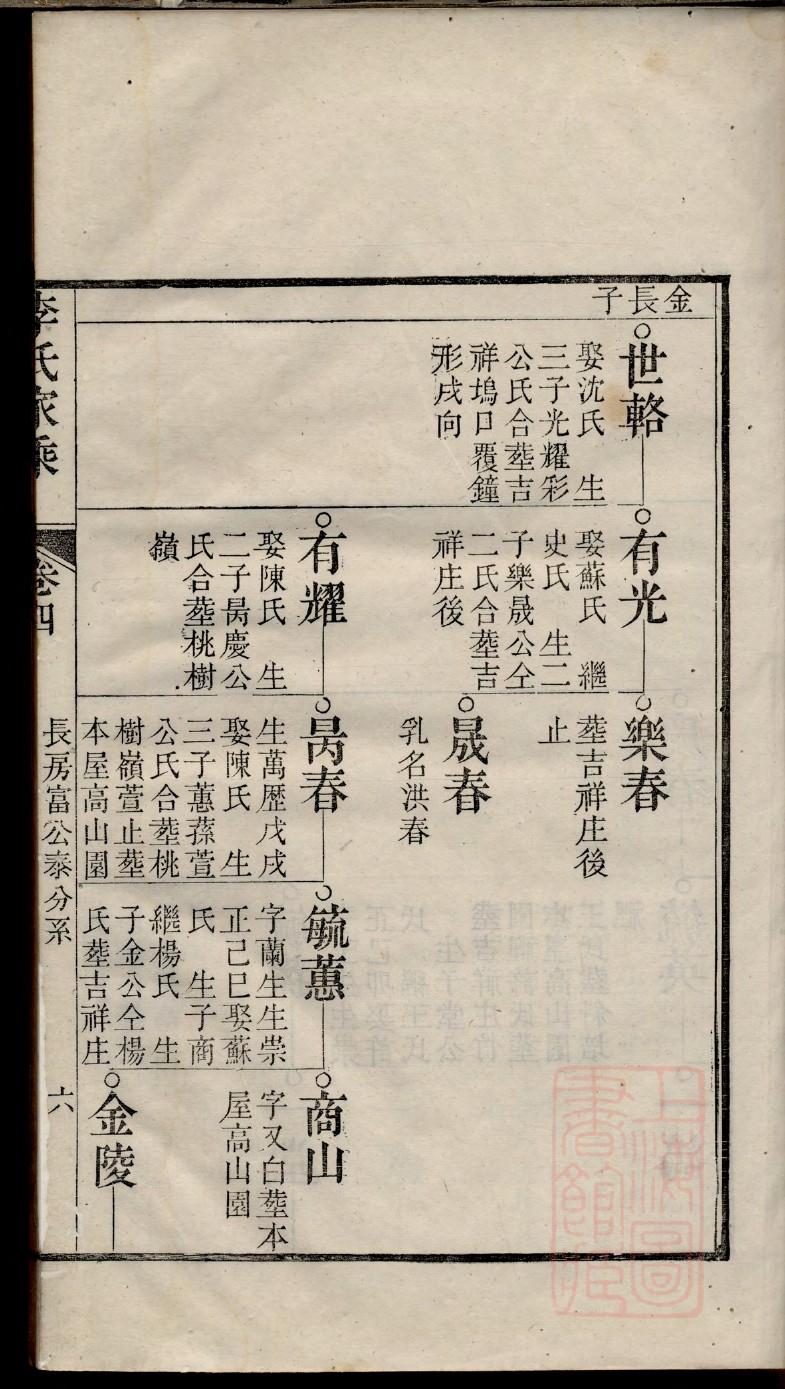 金長子
世輅
娶沈氏　生
三子光耀彩
公氏合塟吉
祥塢口覆鐘
形戌向
有光
娶蘇氏　繼
史氏　生二
子樂晟公仝
二氏合塟吉
祥庄後
有耀
娶陳氏　生
二子昺慶公
氏合塟桃樹
嶺
樂春
塟吉祥庄後
止
晟春
乳名洪春
昺春
生萬歴戊戌
娶陳氏　生
三子蕙蓀萱
公氏合塟桃
樹嶺萱止塟
本屋高山園
毓蕙
字蘭生生崇
正己巳娶蘇
氏　生子商
繼楊氏　生
子金公仝楊
氏塟吉祥庄
商山
字又白塟本
屋高山園
金陵
李氏家乘
卷四
長房富公泰分系
六
上海圖書館藏